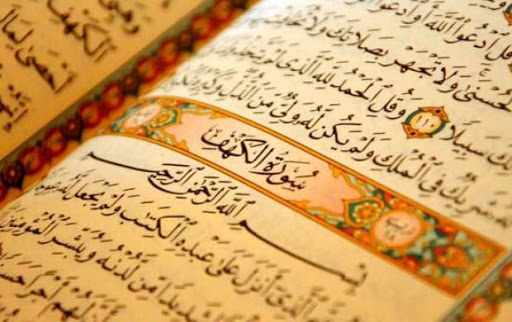 الْكَهْفِ
أَحْصَىٰ لِمَا
قُلِ ادْعُوا اللَّهَ أَوِ ادْعُوا
الْحُسْنَىٰ وَلَا تَجْهَرْ بِصَلَاتِكَ وَلَا
ذَٰلِكَ سَبِيلًا ١١٠ وَقُلِ الْحَمْدُ لِلَّهِ الَّذِي لَمْ يَتَّخِذْ
لَهُ شَرِيكٌ فِي الْمُلْكِ وَلَمْ يَكُنْ لَهُ وَلِيٌّ مِنَ الذُّلِّ وَكَبِّرْهُ
سُورَةُ الْكَهْفِ
بِسْمِ اللَّهِ الرَّحْمَٰنِ الرَّحِيمِ
الَّذِي أَنْزَلَ عَلَىٰ عَبْدِهِ الْكِتَابَ وَلَمْ يَجْعَلْ لَهُ
شَدِيدًا مِنْ لَدُنْهُ وَيُبَشِّرَ الْمُؤْمِنِينَ
أَنَّ لَهُمْ أَجْرًا حَسَنًا